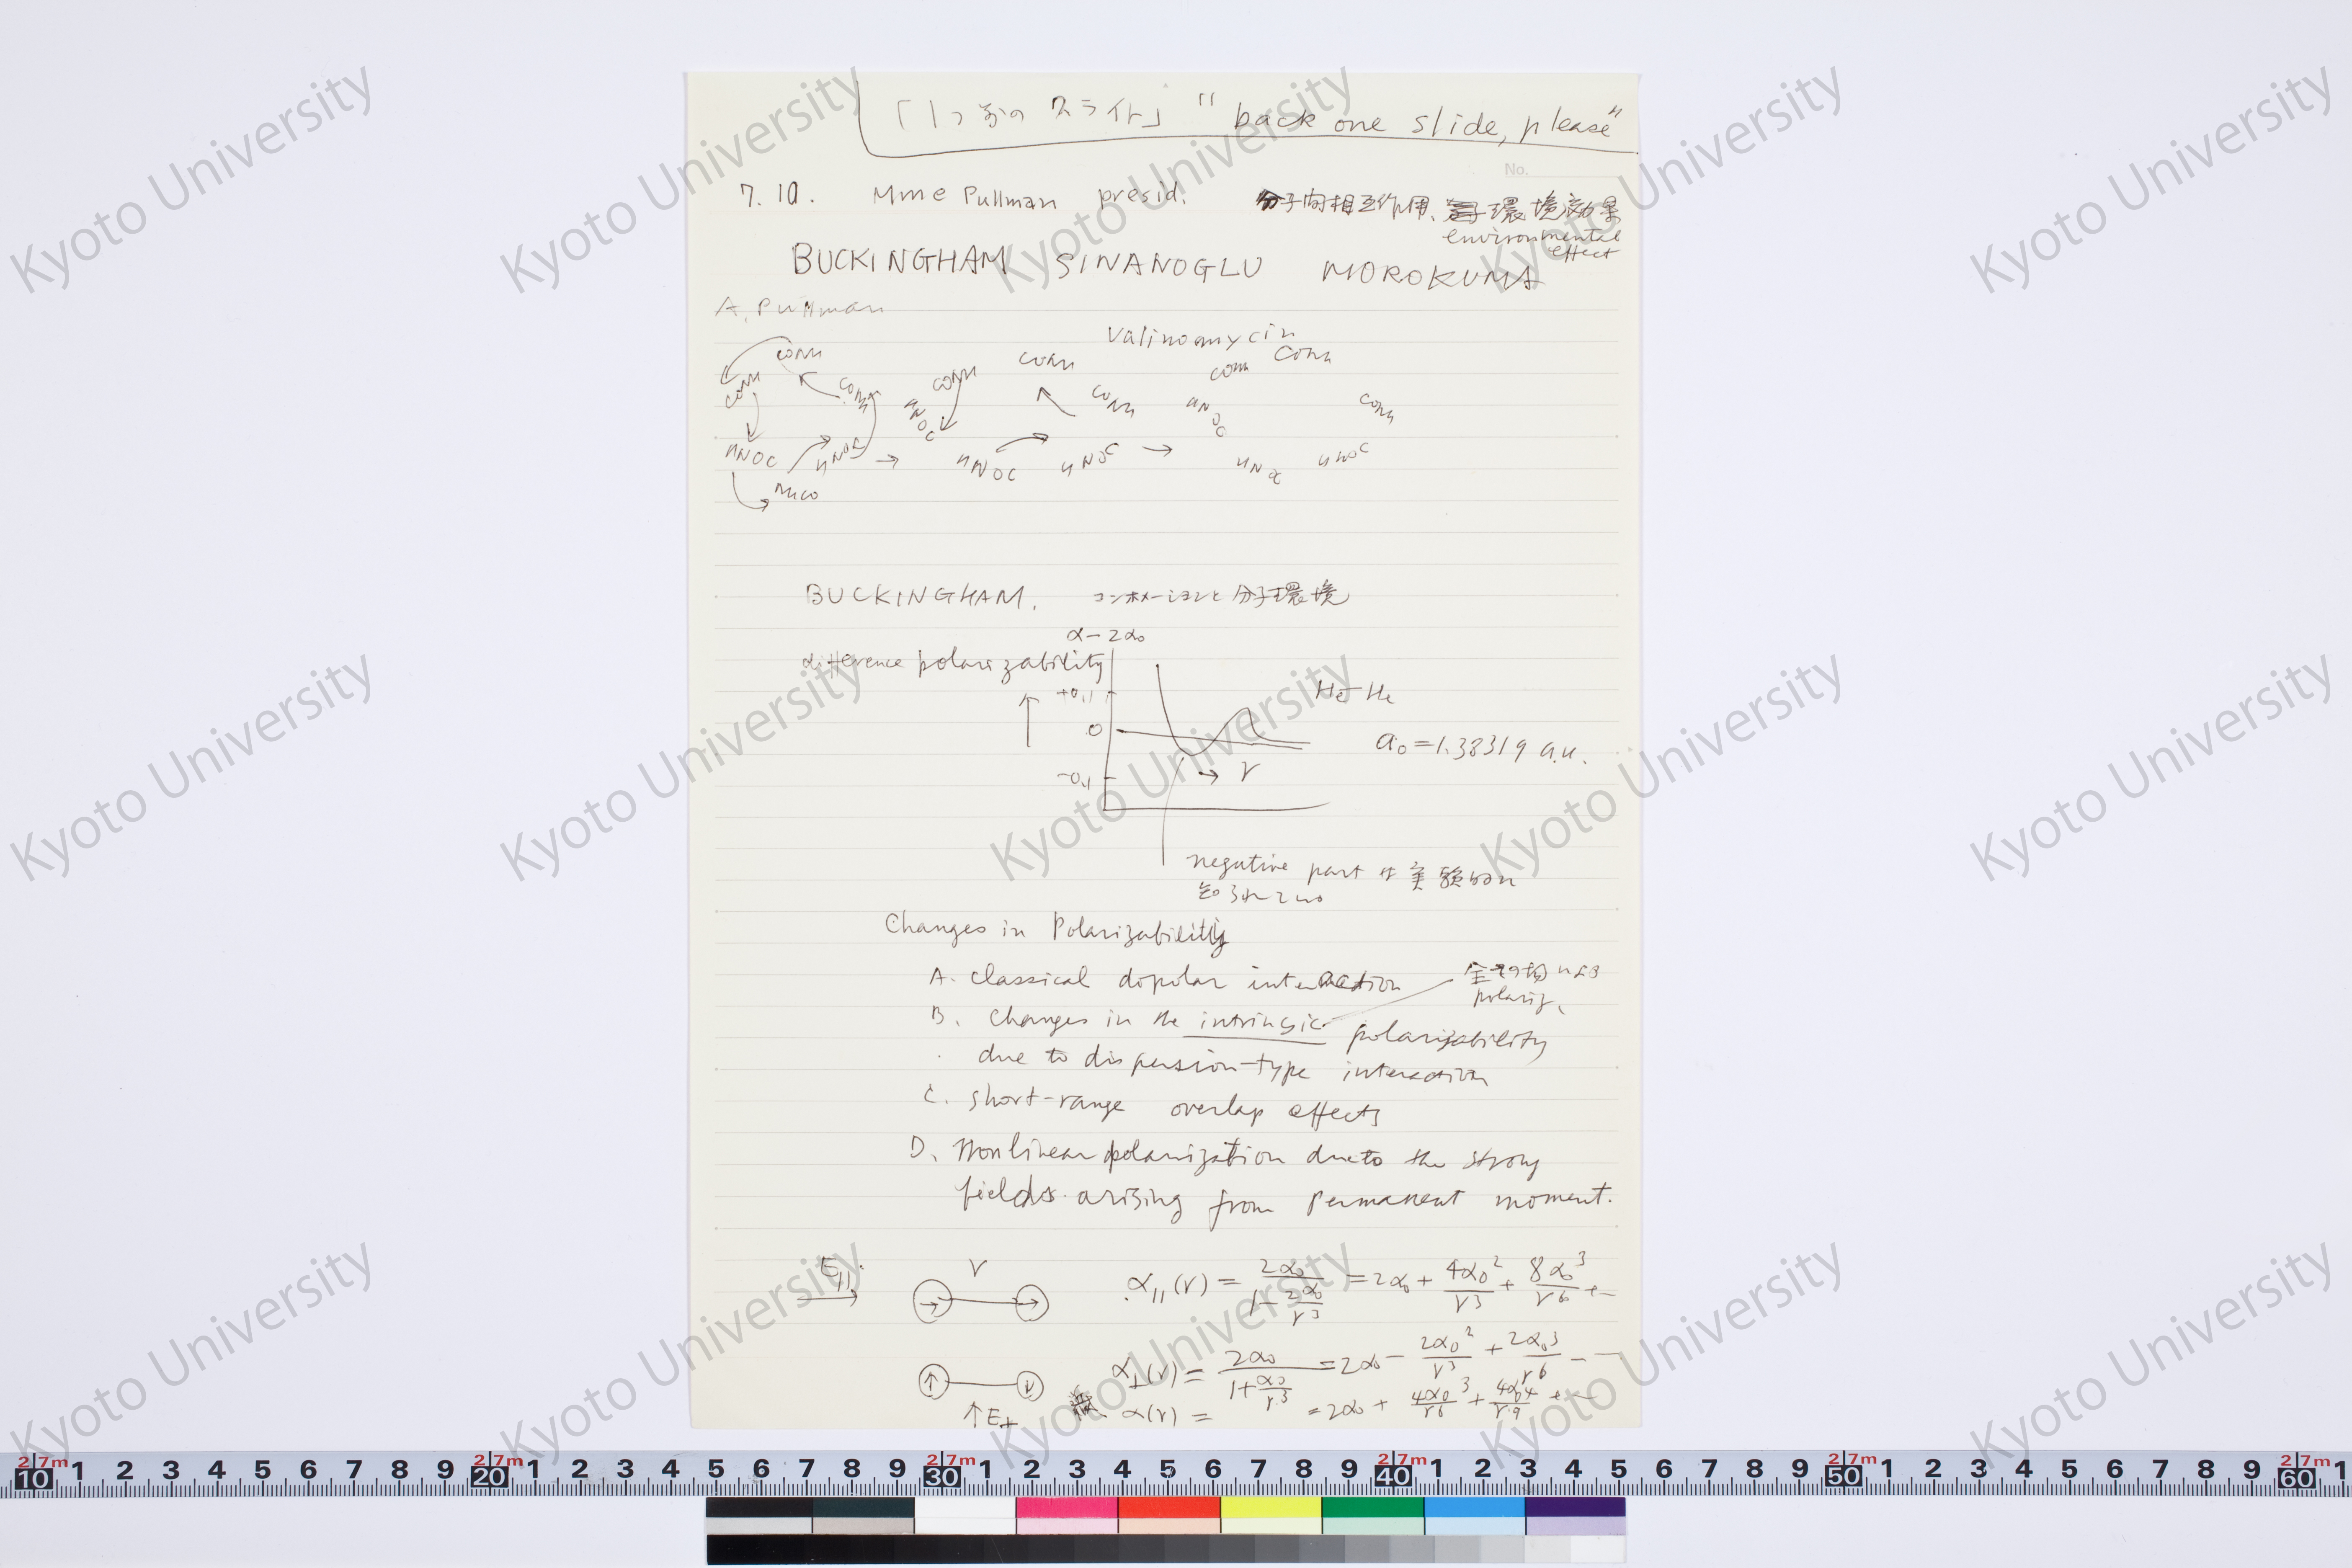 「1つ前のスライド」 "back one slide, please"
No.
7.10. Mme Pullman presid. 分子間相互作用、環境効果
environmental
effect
BUCKINGHAM SINANOGLU MOROKUMA
A. Pullman
Valinomycin
CONH CONH CONH CONH CONH
CONH CONH CONH CONH
HNOC HNOC HNOC HNOC
HNOC HNOC HNOC
BUCKINGHAM. コンホメーションと分子環境
α-2α₀
difference polarizability
+0.1
He-He
0
a₀=1.38319 a.u.
-0.1
→ r
negative part は実験的に
知られている
Changes in Polarizability
A. Classical dipolar interaction
polariz.
B. Changes in the intrinsic polarizability
due to dispersion-type interaction
C. short-range overlap effects
D. Nonlinear polarization due to the strong
fields arising from permanent moment.
E∥ r α∥(r) = 2α₀/(1-2α₀/r³) = 2α₀ + 4α₀²/r³ + 8α₀³/r⁶ + --
α⊥(r) = 2α₀/(1+α₀/r³) = 2α₀ - 2α₀²/r³ + 2α₀³/r⁶ - --
↑E⊥ α(r) = = 2α₀ + 4α₀³/r⁶ + 4α₀⁴/r⁹ + --
Kyoto University